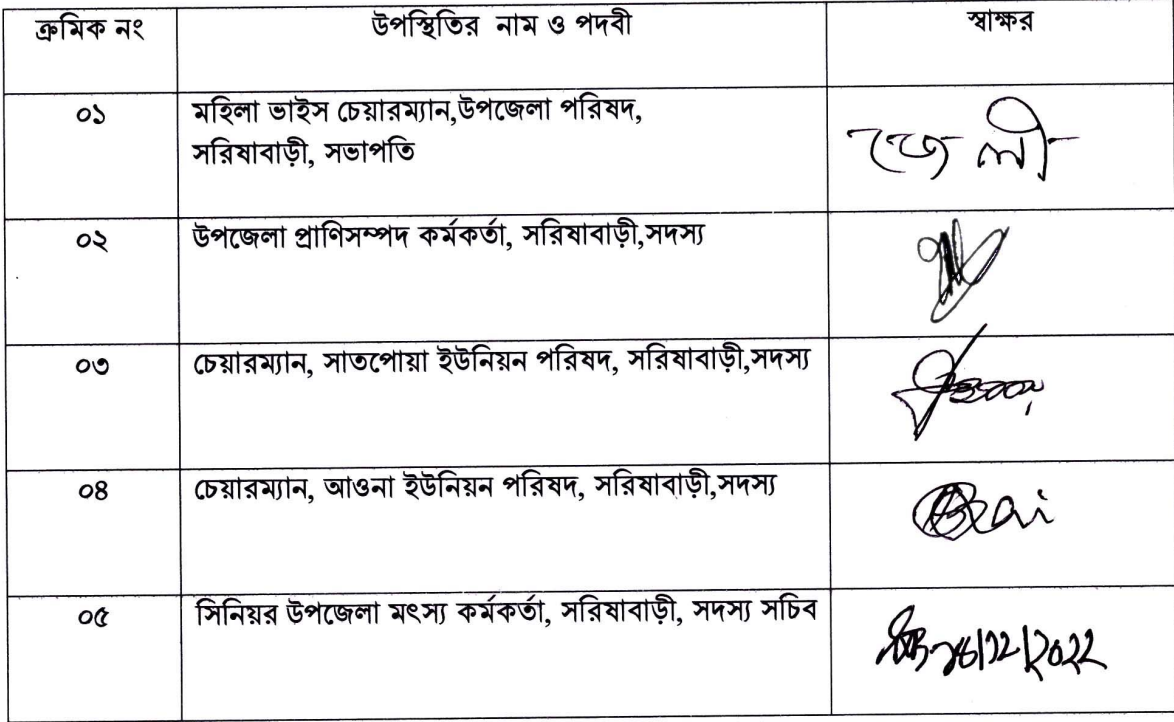 ক্রমিক নং উপস্থিতির নাম ও পদবী স্বাক্ষর
০১ মহিলা ভাইস চেয়ারম্যান,উপজেলা পরিষদ,
সরিষাবাড়ী, সভাপতি জেলী
০২ উপজেলা প্রাণিসম্পদ কর্মকর্তা, সরিষাবাড়ী,সদস্য
০৩ চেয়ারম্যান, সাতপোয়া ইউনিয়ন পরিষদ, সরিষাবাড়ী,সদস্য
০৪ চেয়ারম্যান, আওনা ইউনিয়ন পরিষদ, সরিষাবাড়ী,সদস্য
০৫ সিনিয়র উপজেলা মৎস্য কর্মকর্তা, সরিষাবাড়ী, সদস্য সচিব